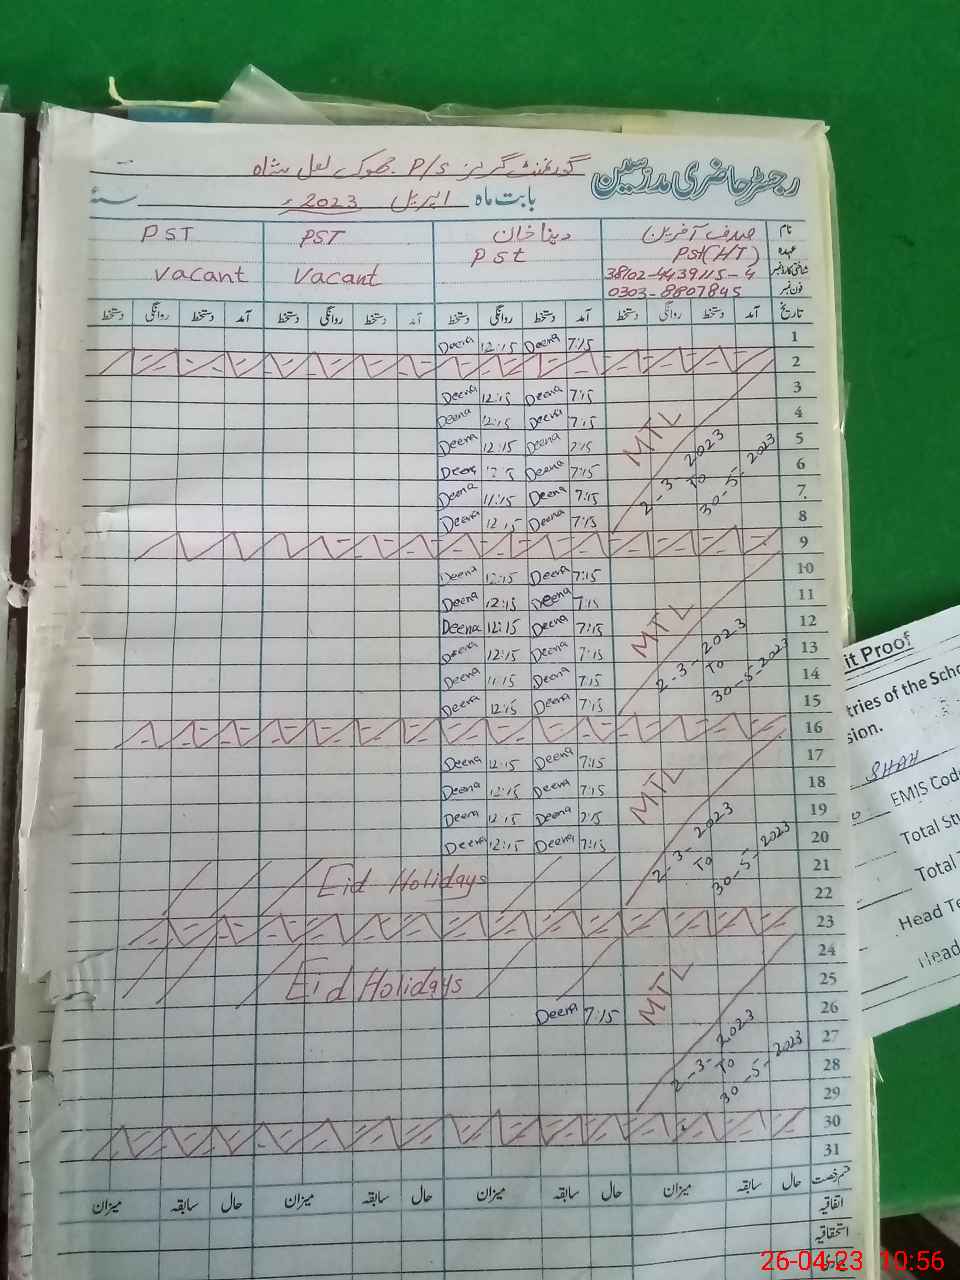 رجسٹر حاضری مدرسین گورنمنٹ گرلز P/S جھوک لعل شاہ
بابت ماہ اپریل 2023ء سنہ
نام صدف آفرین دینا خان PST PST
عہدہ Pst(HT) Pst
شناختی کارڈ نمبر 38102-4439115-4 Vacant Vacant
فون نمبر 0303-8807845
تاریخ آمد دستخط روانگی دستخط آمد دستخط روانگی دستخط آمد دستخط روانگی دستخط آمد دستخط روانگی دستخط
1 7:15 Deena 12:15 Deena
2
3 7:15 Deena 12:15 Deena
4 7:15 Deena 12:15 Deena
5 7:15 Deena 12:15 Deena
6 7:15 Deena Deena
7 7:15 Deena 11:15 Deena
8 7:15 Deena 12:15 Deena
MTL 2-3-2023 To 30-5-2023
9
10 7:15 Deena 12:15 Deena
11 7:15 Deena 12:15 Deena
12 7:15 Deena 12:15 Deena
13 7:15 Deena 12:15 Deena
14 7:15 Deena 11:15 Deena
15 7:15 Deena 12:15 Deena
MTL 2-3-2023 To 30-5-2023
16
17 7:15 Deena 12:15 Deena
18 7:15 Deena 12:15 Deena
19 7:15 Deena 12:15 Deena
20 7:15 Deena 12:15 Deena
MTL 2-3-2023 To 30-5-2023
21 Eid Holidays
22
23
24
25 Eid Holidays
26 7:15 Deena
27
28
29
MTL 2-3-2023 To 30-5-2023
30
31
قسم رخصت حال سابقہ میزان حال سابقہ میزان حال سابقہ میزان حال سابقہ میزان
اتفاقیہ
استحقاقیہ
it Proof
tries of the Scho
sion.
SHAH
EMIS Code
Total Stu
Total T
Head Te
Head
26-04-23 10:56